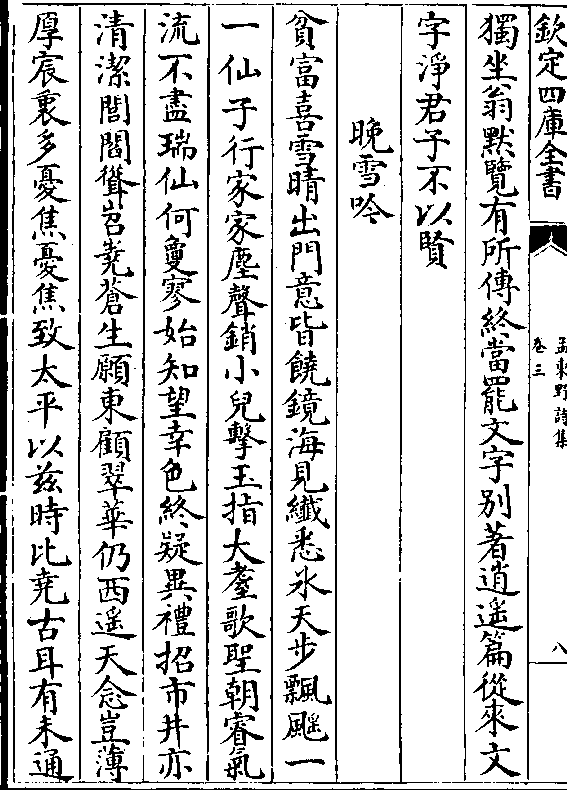 欽定四庫全書
孟東野詩集
卷三
八
獨坐翁默覽有所傳終當罷文字别著逍遥篇從來文
字淨君子不以賢
晚雪吟
貧富喜雪晴出門意皆饒鏡海見纖悉氷天步飄飖一
一仙子行家家塵聲銷小兒擊玉指大耋歌聖朝睿氣
流不盡瑞仙何敻寥始知望幸色終疑異禮招市井亦
清潔閭閻聳岧堯蒼生願東顧翠華仍西遥天念豈薄
厚宸衷多憂焦憂焦致太平以兹時比堯古耳有未通